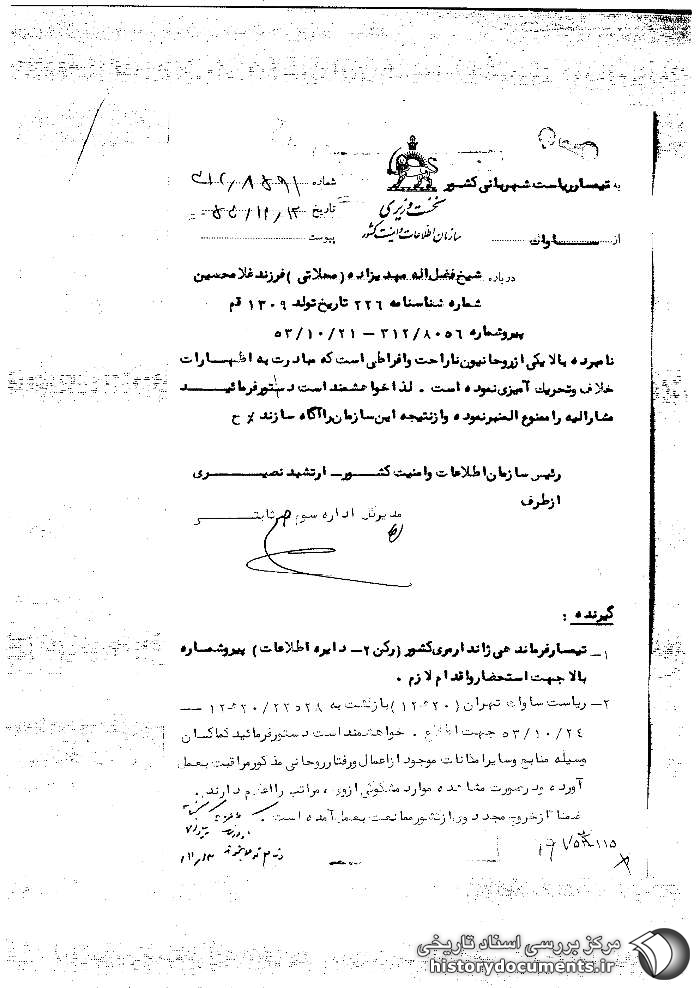 به تیمسار ریاست شهربانی کشور
نخست وزیری
سازمان اطلاعات و امنیت کشور
شماره ۳۱۲/۸۵۹۱
تاریخ
پیوست
از ســاواك
درباره شیخ فضل اله مهدیزاده (محلاتی) فرزند غلامحسین
شماره شناسنامه ۲۲۶ تاریخ تولد ۱۳۰۹ قم
پیرو شماره ۳۱۲/۸۰۵۶ – ۵۳/۱۰/۲۱
نامبرده بالا یکی از روحانیون ناراحت و افراطی است که مبادرت به اظهــارات
خلاف و تحریك آمیزی نموده است . لذا خواهشمند است دستور فرمائیــد
مشارالیه را ممنوع المنبر نموده و از نتیجه این سازمان را آگاه سازند ٪ ح
رئیس سازمان اطلاعات و امنیت کشــور – ارتشبد نصیــری
از طرف
مدیر کل اداره سوم ثابتــی
گیرنده :
۱– تیمسار فرماندهی ژاندارمری کشور (رکن ۲ – دایره اطلاعات) پیرو شماره
بالا جهت استحضار و اقدام لازم .
۲– ریاست ساواك تهران (۱۲ه۲۰) بازگشت به ۲۲۵۲۸/۲۰ه۱۲ –
۵۳/۱۰/۲۴ جهت اطلاع . خواهشمند است دستور فرمائید کماکان
وسیله منابع و سایر امکانات موجود از اعمال و رفتار روحانی مذکور مراقبت بعمل
آورده و در صورت مشاهده موارد مشکوکی از وی ، مراتب را اعلام دارند .
ضمنا از خروج مجدد وی از کشور ممانعت بعمل آمده است .
مرکز بررسی اسناد تاریخی
historydocuments.ir